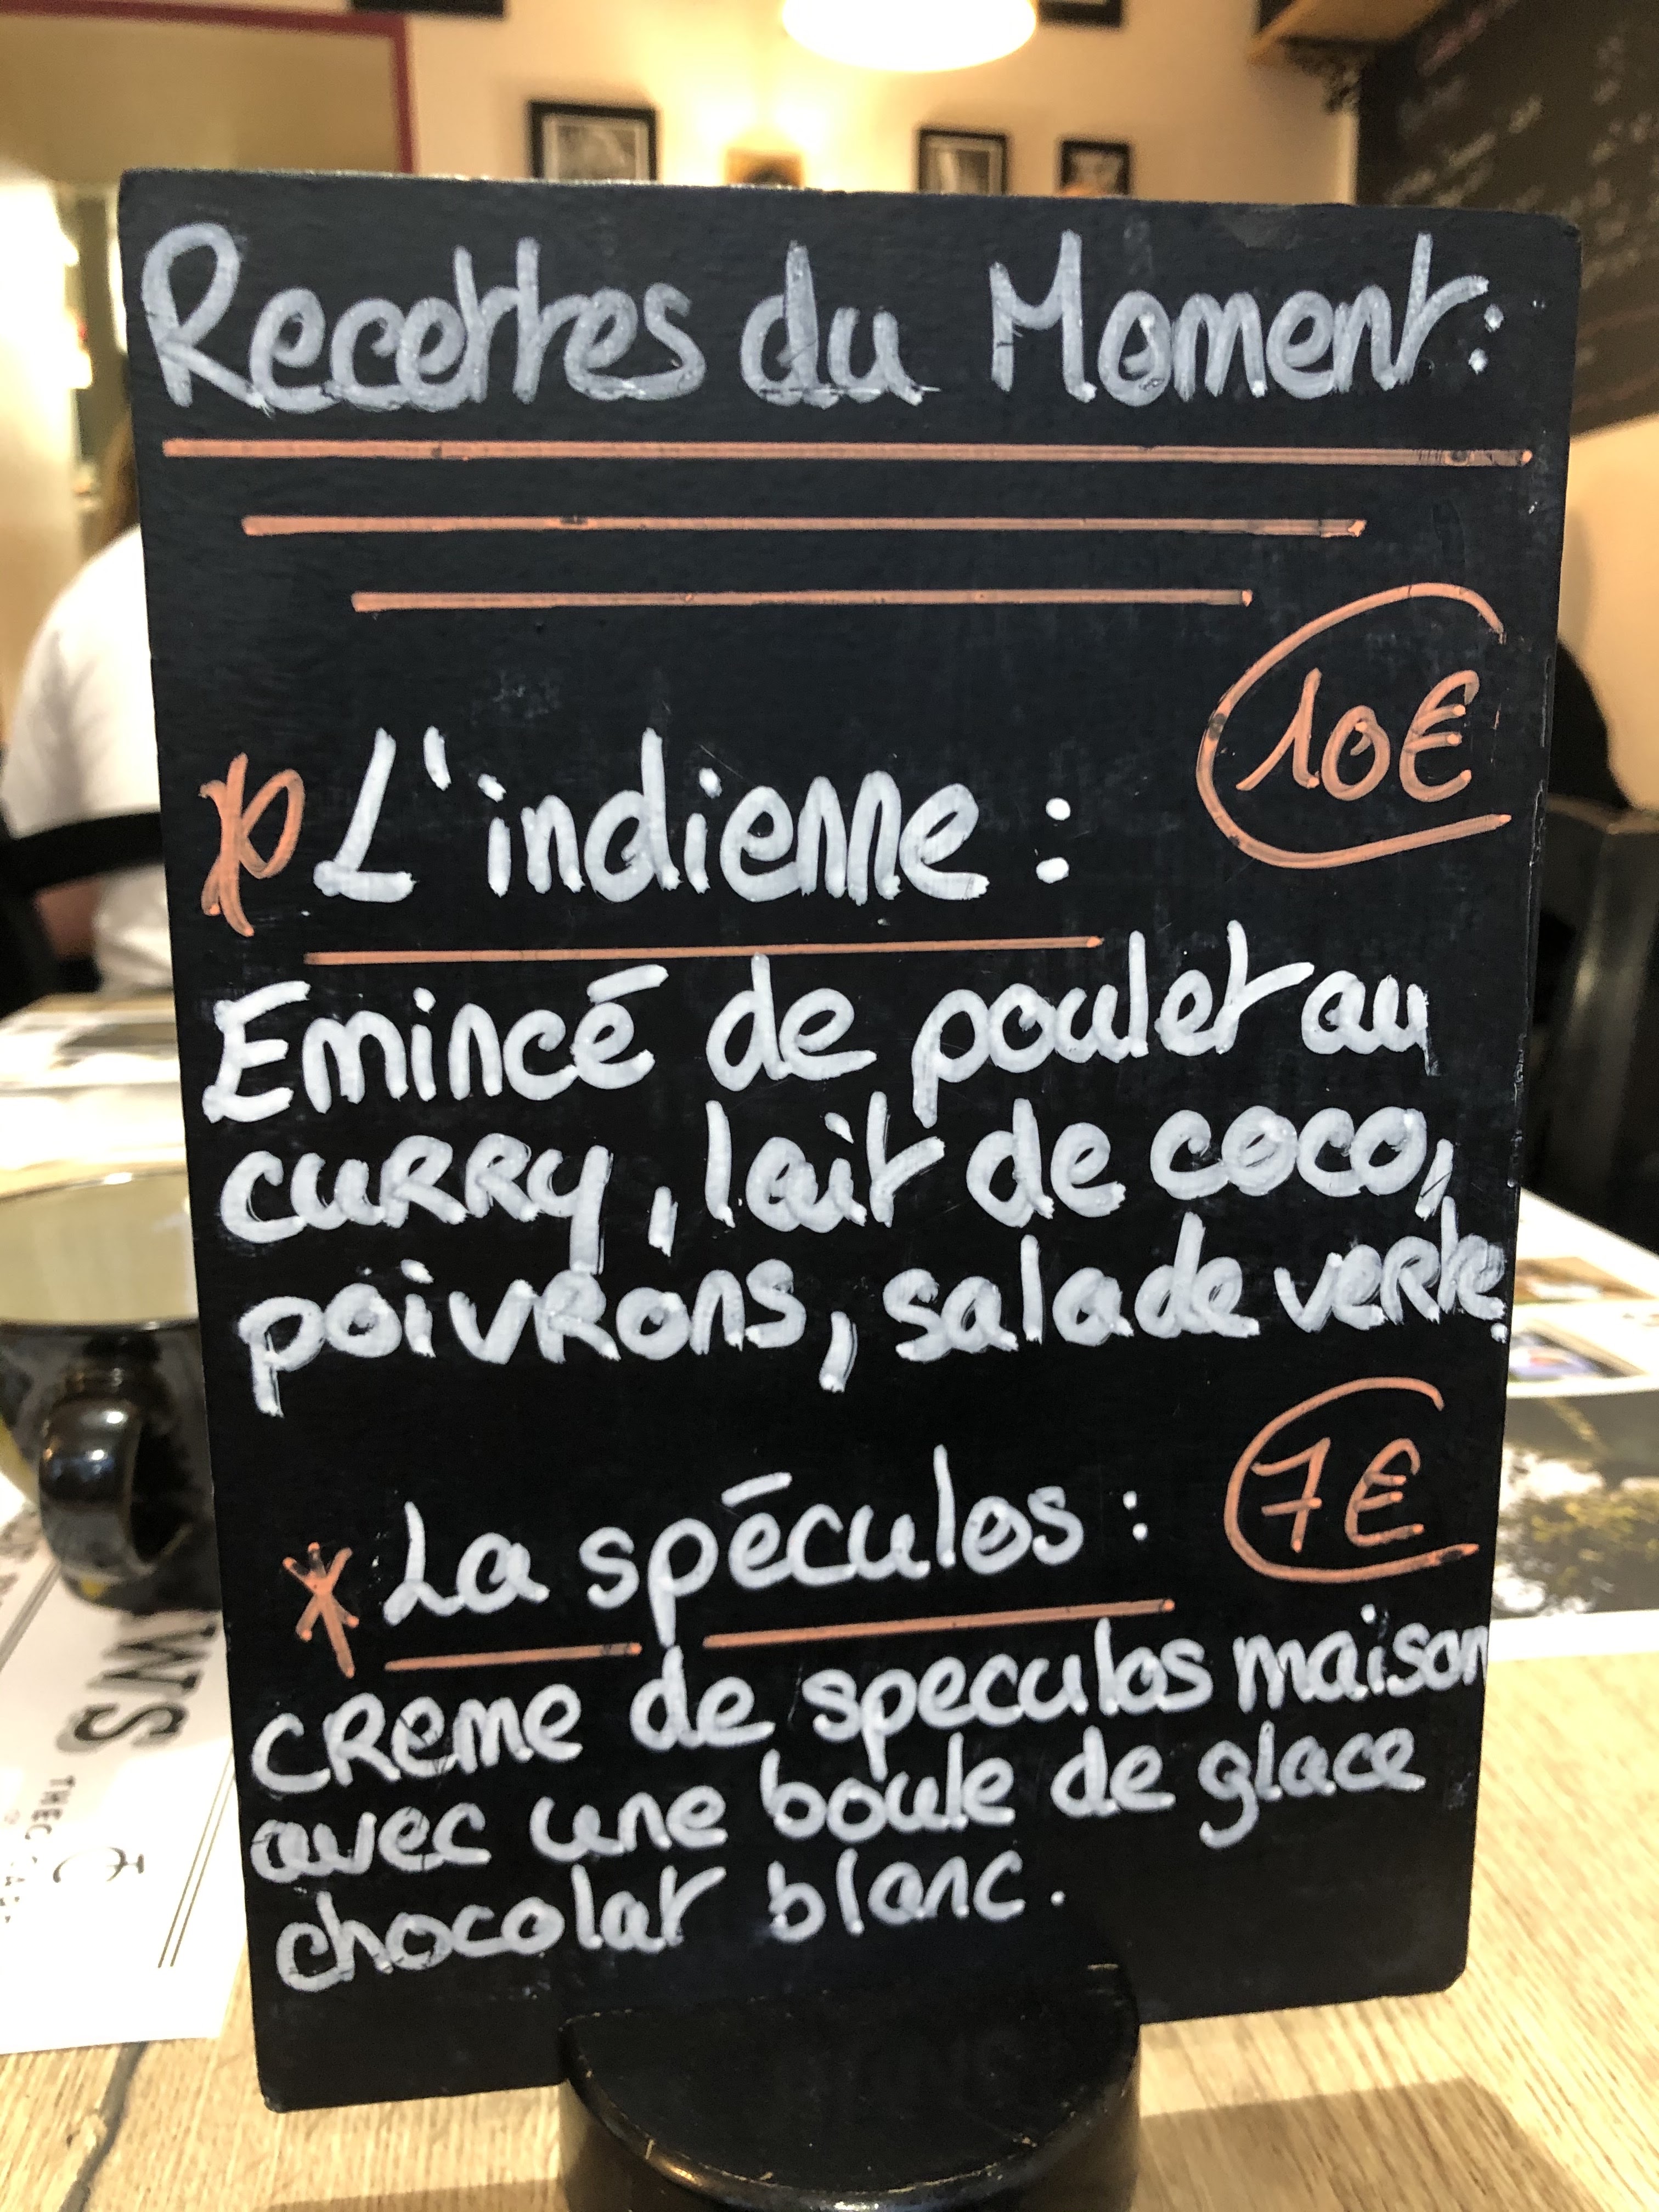 Recettes du Moment:
10€
L'indienne :
Emincé de poulet au
curry, lait de coco,
poivrons, salade verte
7€
La spéculos :
creme de speculos maison
avec une boule de glace
chocolat blanc.
WS